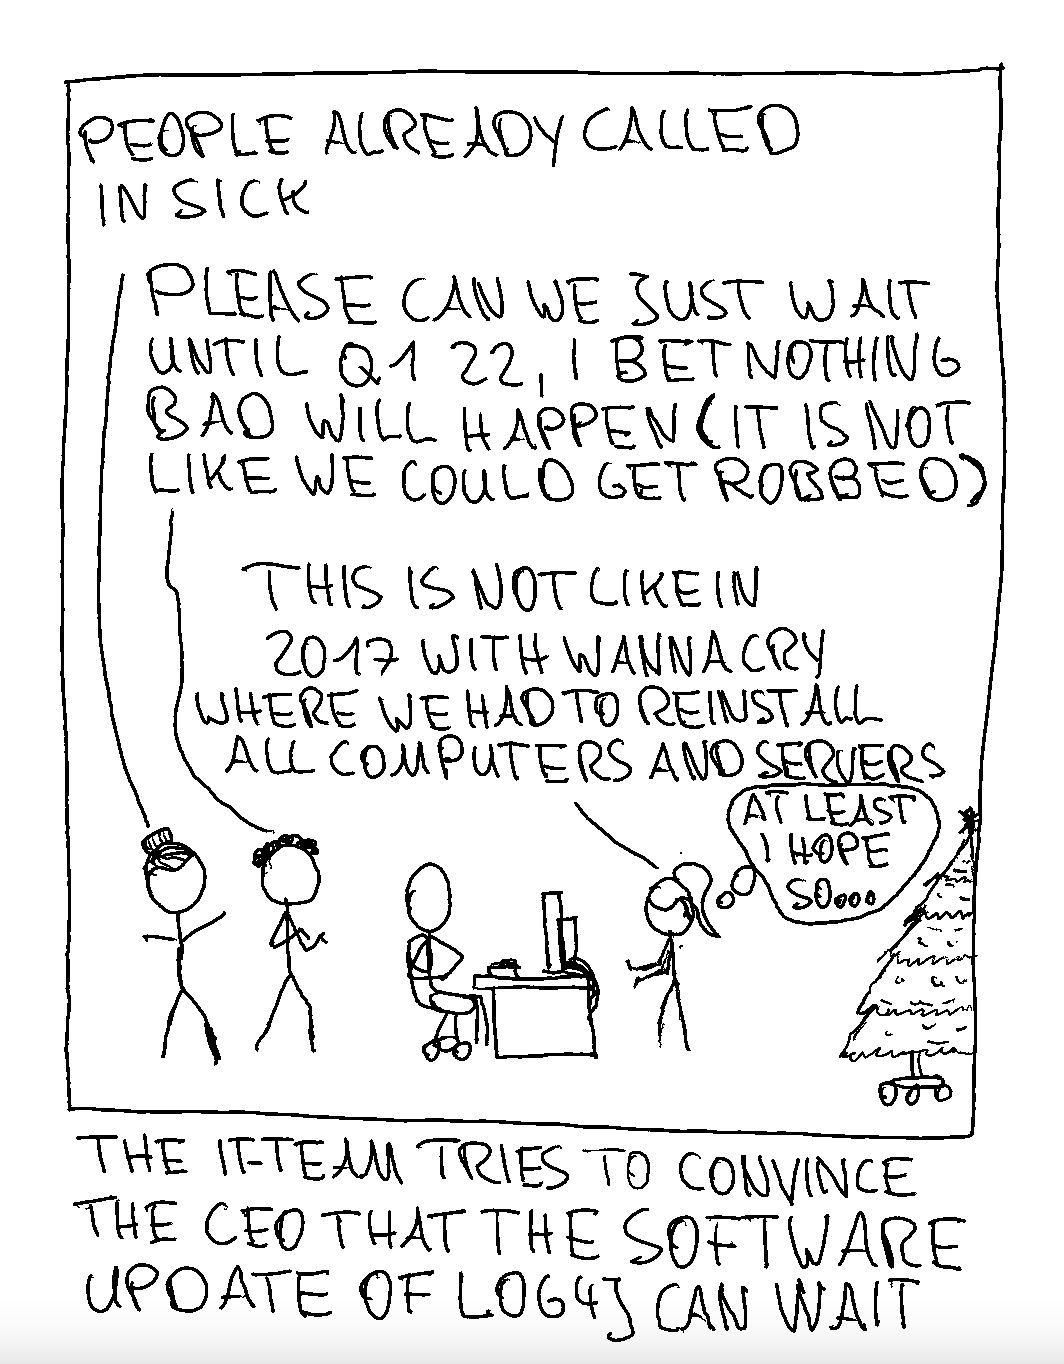 PEOPLE ALREADY CALLED
IN SICK
PLEASE CAN WE JUST WAIT
UNTIL Q1 22, I BET NOTHING
BAD WILL HAPPEN (IT IS NOT
LIKE WE COULD GET ROBBED)
THIS IS NOT LIKE IN
2017 WITH WANNACRY
WHERE WE HAD TO REINSTALL
ALL COMPUTERS AND SERVERS
AT LEAST
I HOPE
SO...
THE IT-TEAM TRIES TO CONVINCE
THE CEO THAT THE SOFTWARE
UPDATE OF LOG4J CAN WAIT